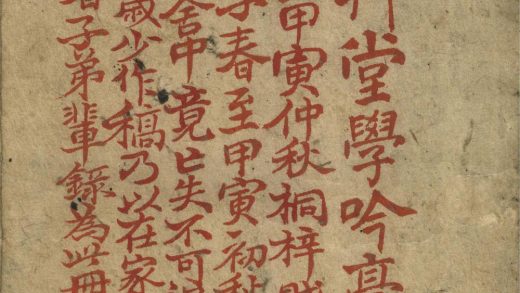 堂學吟草
甲寅仲秋桐梓
春至甲寅初秋
舍中竟亡失不可
歲少作稿乃以在家
子弟輩錄為此冊